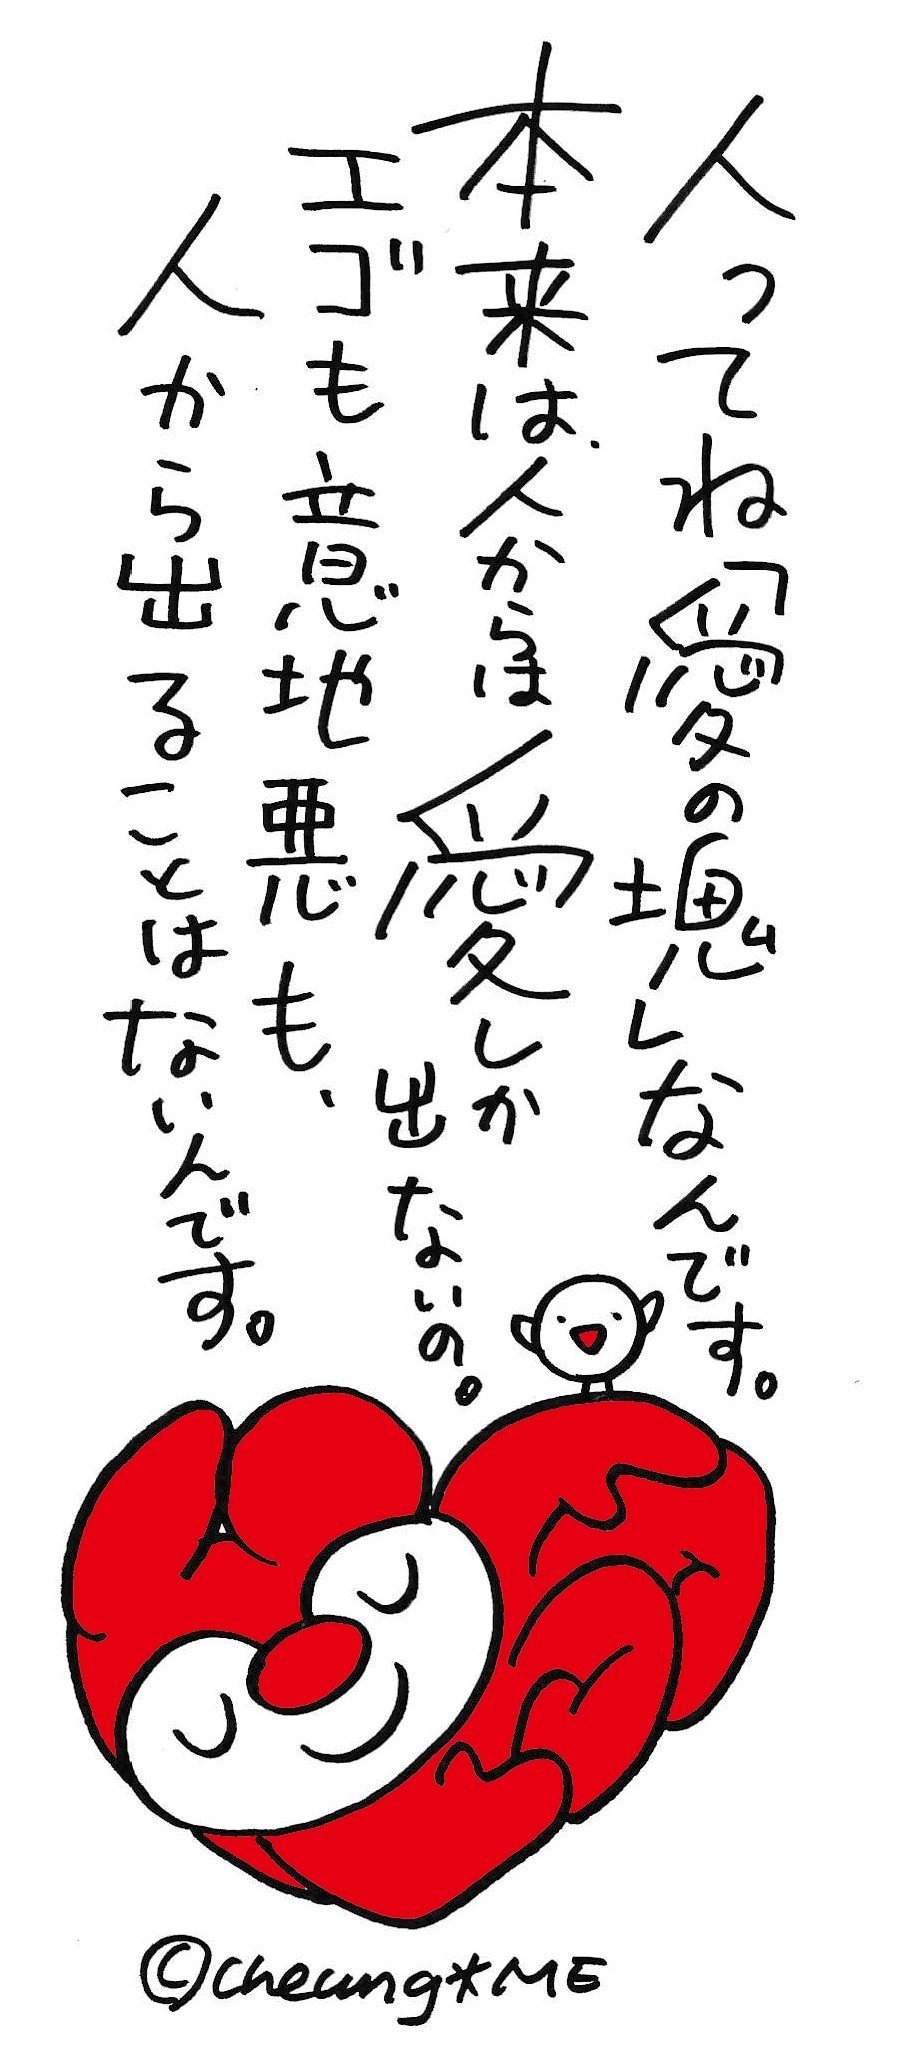 人ってね「愛の塊」なんです。
本来は、人からは愛しか出ないの。
エゴも意地悪も、
人から出ることはないんです。
©cheung*ME